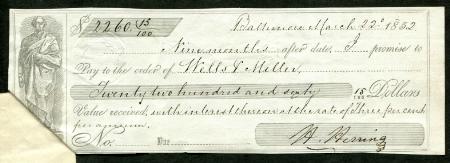 $2260. 15/100 Baltimore March 22d 1852
Nine months after date, I promise to
Pay to the order of Wells & Miller,
Twenty two hundred and sixty 15/100 Dollars
Value received, with interest thereon at the rate of Three per cent
per annum.
No. Due H. Herring